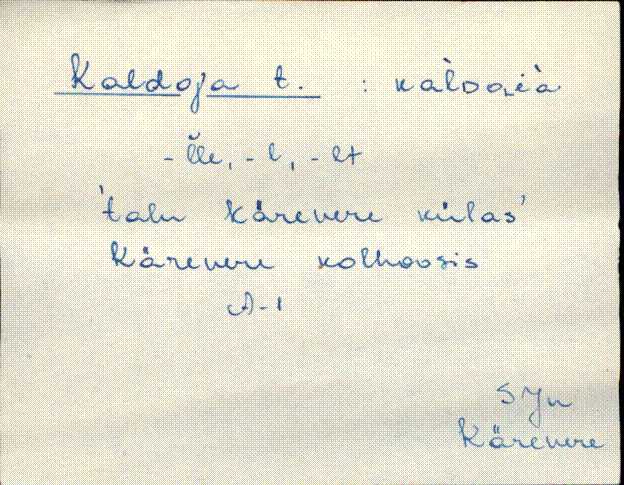 Kaldoja t. : kàlDoi̯à
-l̆le, -l, -lt
'talu Kärevere külas'
Kärevere kolhoosis
A-1
SJn
Kärevere